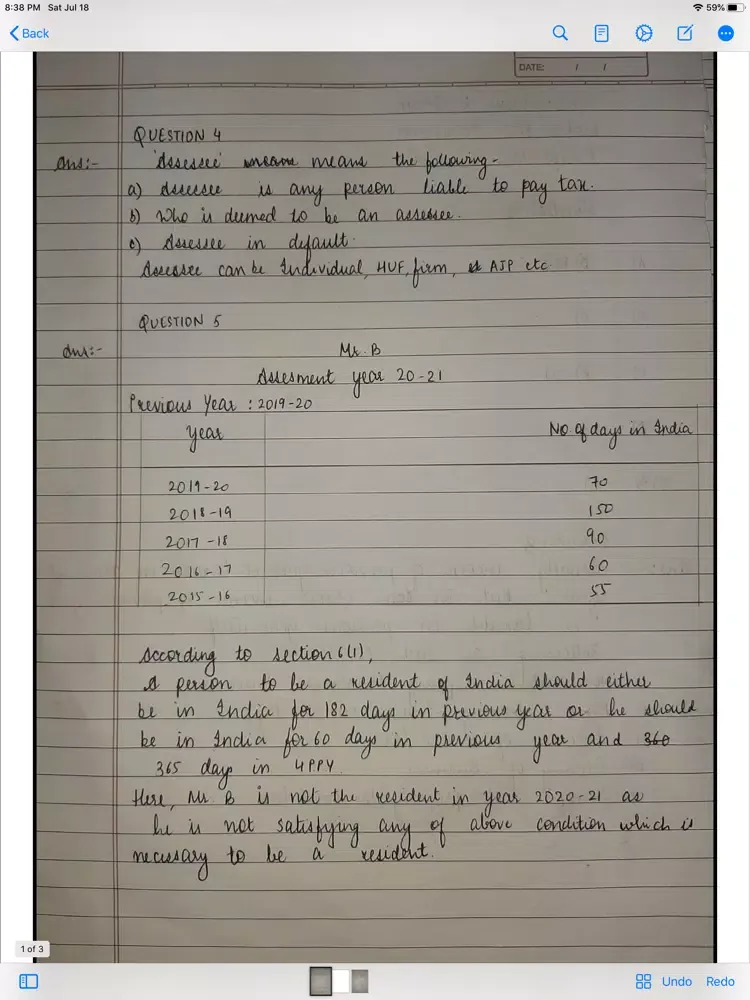 8:38 PM Sat Jul 18 59%
Back
DATE: / /
QUESTION 4
Ans:- 'Assessee' means the following-
a) Assessee is any person liable to pay tax.
b) Who is deemed to be an assessee.
c) Assessee in default.
Assessee can be Individual, HUF, firm, AJP etc
QUESTION 5
Ans:- Mr. B
Assesment year 20-21
Previous Year : 2019-20
Year No of days in India
2019-20 70
2018-19 150
2017-18 90
2016-17 60
2015-16 55
According to section 6(1),
A person to be a resident of India should either
be in India for 182 days in previous year or he should
be in India for 60 days in previous year and 360
365 days in 4PPY.
Here, Mr. B is not the resident in year 2020-21 as
he is not satisfying any of above condition which is
necessary to be a resident.
1 of 3
Undo Redo